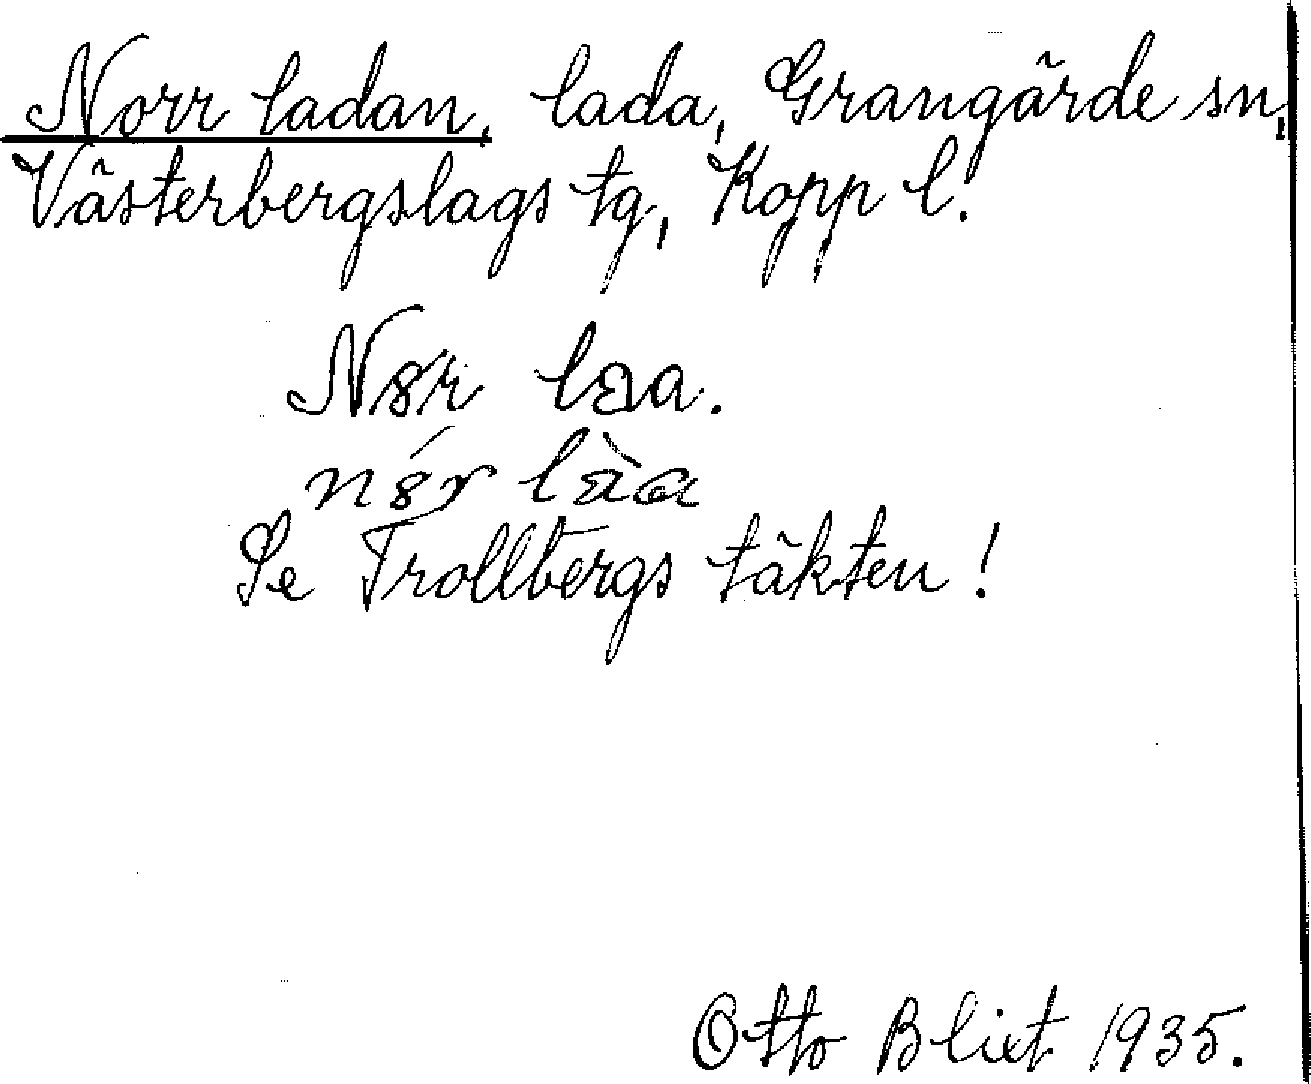 Norr ladan, lada, Grangärde sn,
Västerbergslags tg, Kopp l.
Nȣr laa.
nȣ́r làa
Se Trollbergs täkten!
Otto Blixt 1935.